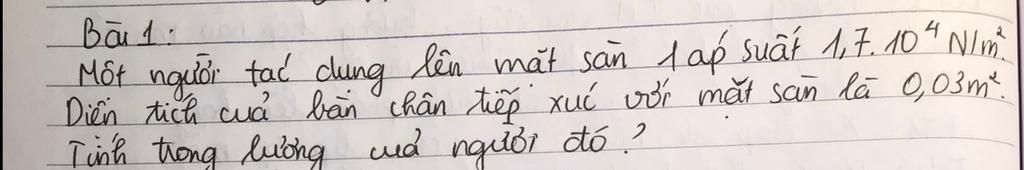 Bài 1:
Một người tác dụng lên mặt sàn 1 áp suất 1,7.10⁴ N/m².
Diện tích của bàn chân tiếp xúc với mặt sàn là 0,03m².
Tính trọng lượng của người đó?